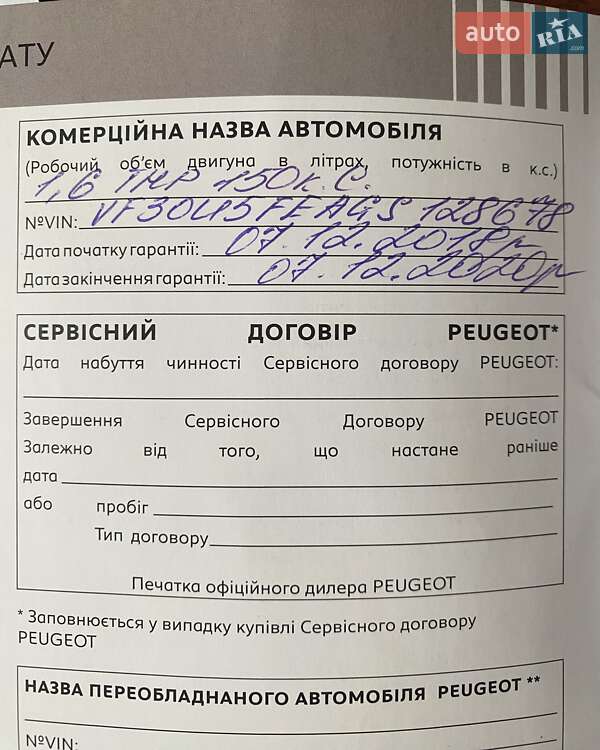 АТУ
auto RIA .com
КОМЕРЦІЙНА НАЗВА АВТОМОБІЛЯ
(Робочий об'єм двигуна в літрах, потужність в к.с.)
1,6 THP 150к.с.
№VIN: VF3OU5FEAGS128678
Дата початку гарантії: 07.12.2018р
Дата закінчення гарантії: 07.12.2020р
СЕРВІСНИЙ ДОГОВІР PEUGEOT*
Дата набуття чинності Сервісного договору PEUGEOT:
Завершення Сервісного Договору PEUGEOT
Залежно від того, що настане раніше
дата
або пробіг
Тип договору
Печатка офіційного дилера PEUGEOT
* Заповнюється у випадку купівлі Сервісного договору
PEUGEOT
НАЗВА ПЕРЕОБЛАДНАНОГО АВТОМОБІЛЯ PEUGEOT **
№VIN: